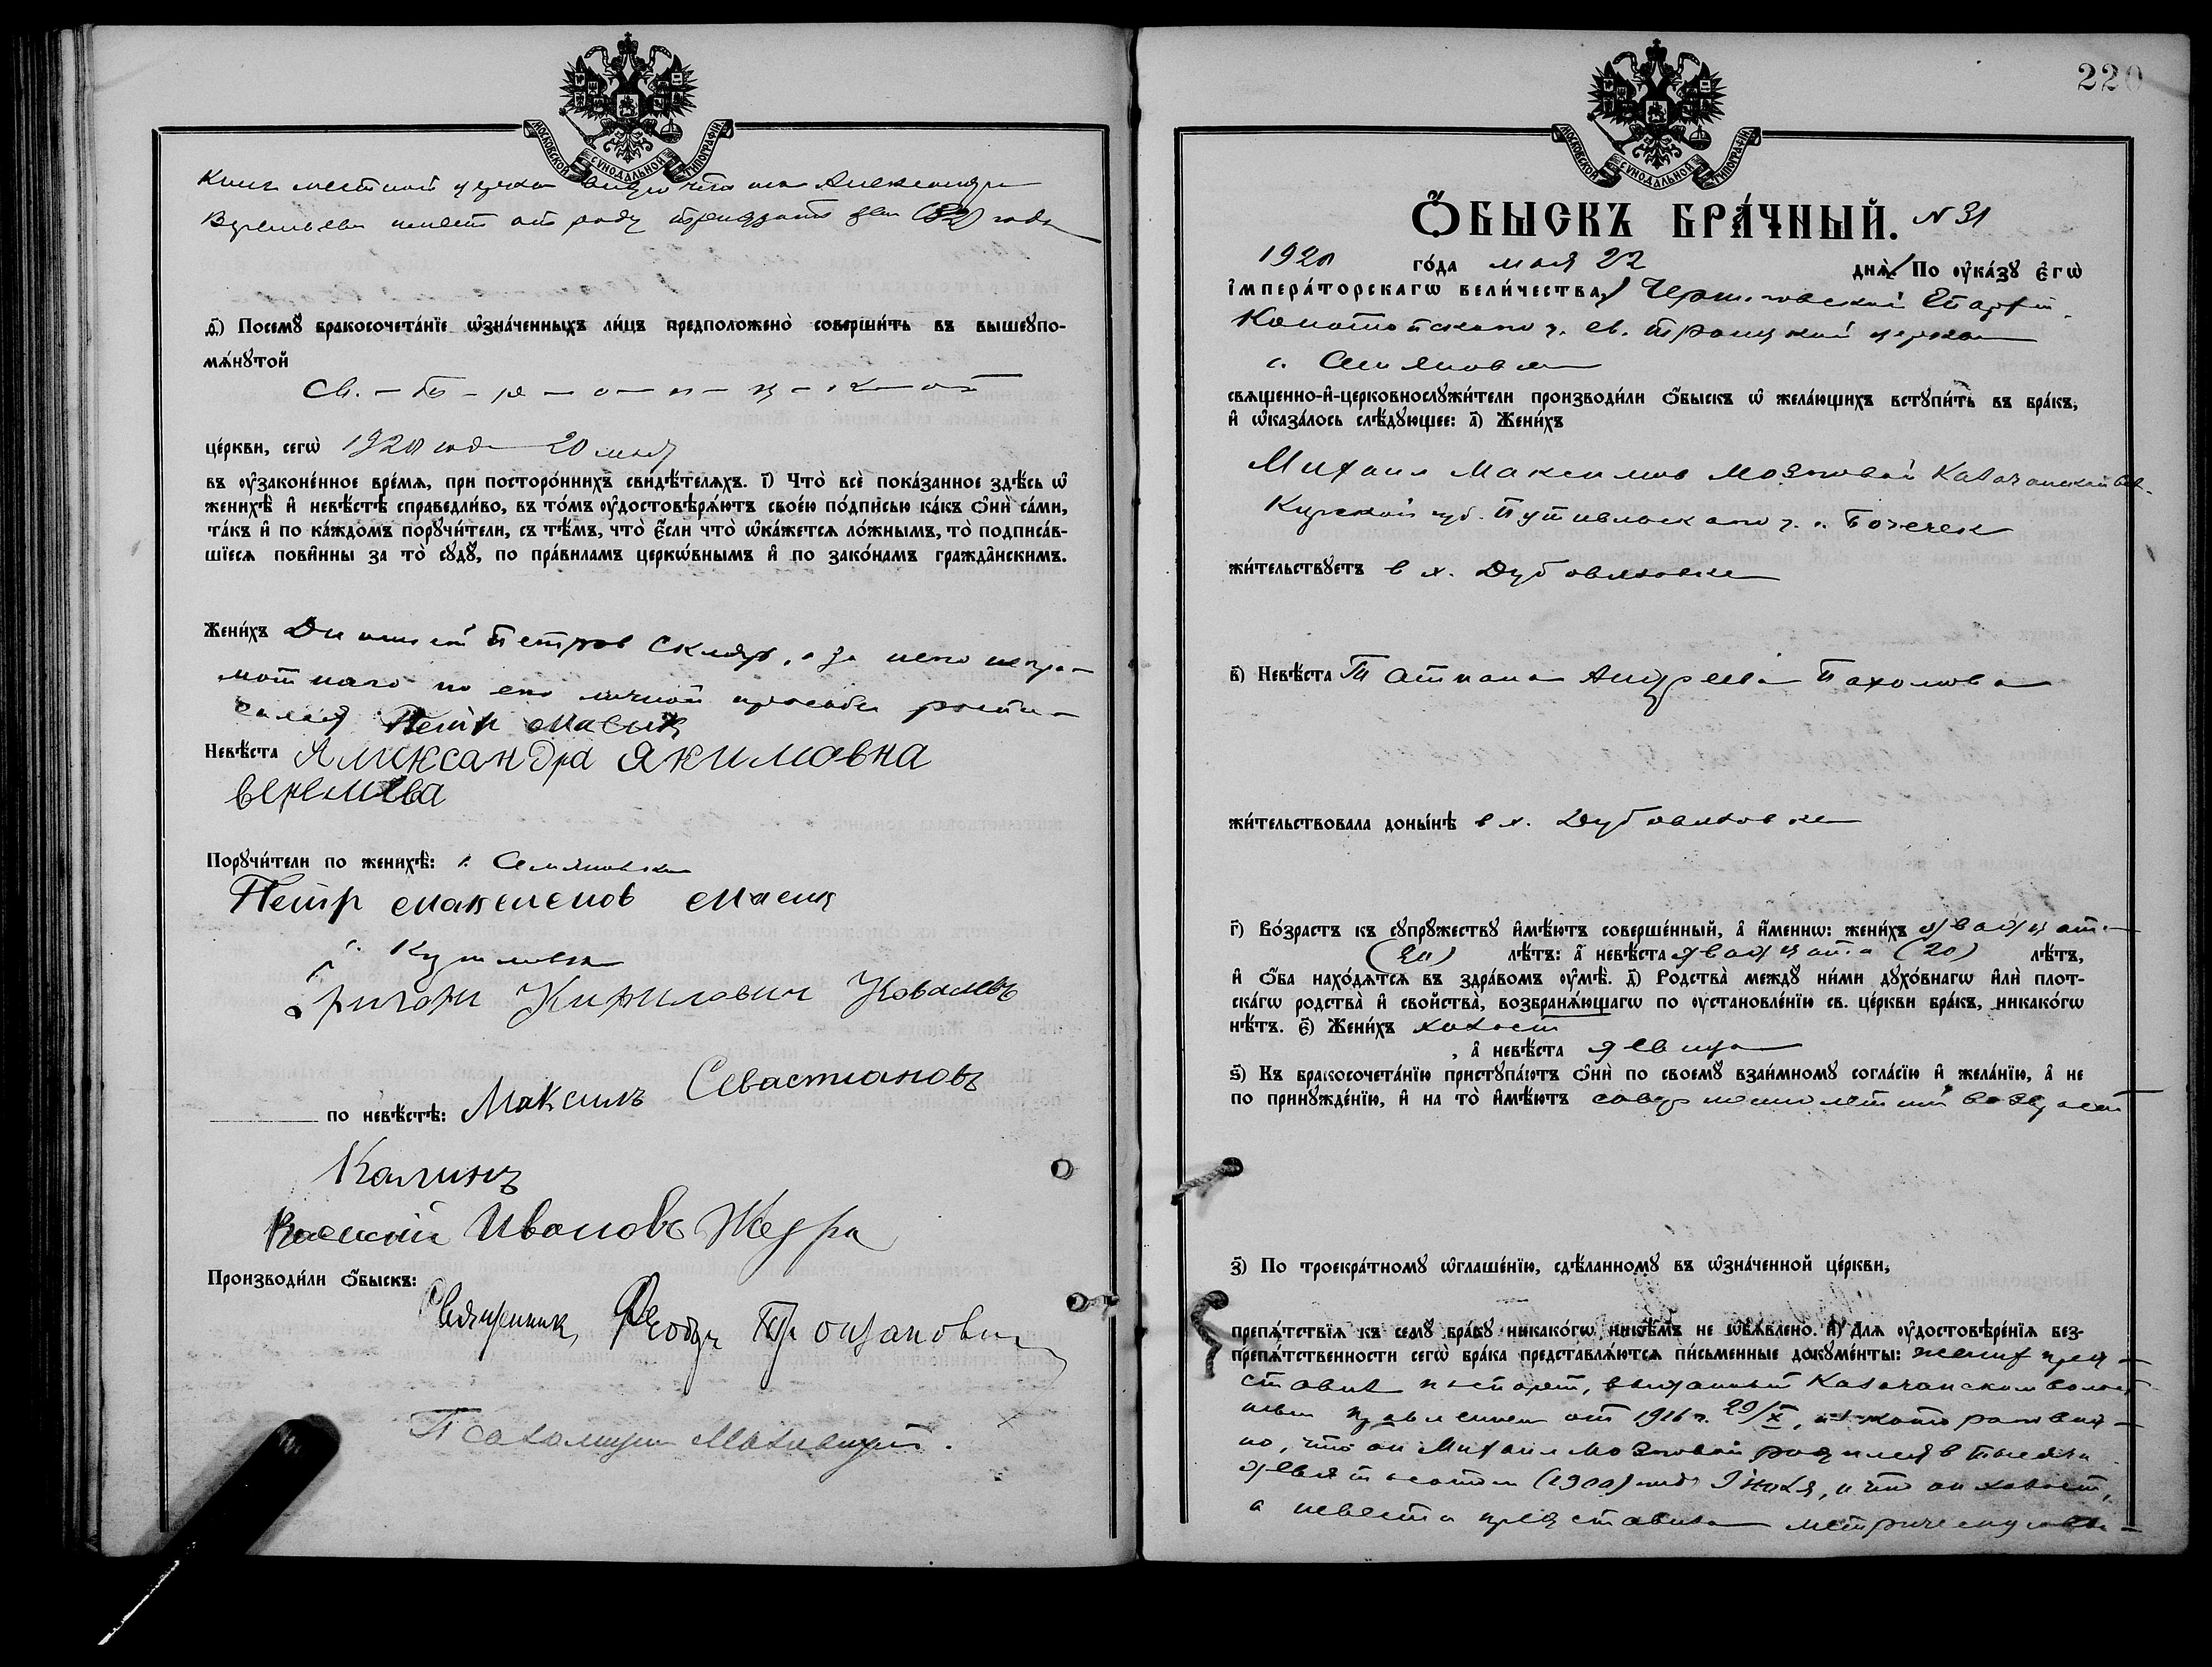 МОСКОВСКОЙ СѴНОДАЛЬНОЙ ТИПОГРАФІИ
Книг местной церкви видно что она Александра
Веремеева имеет от роду тридцать два (32) года
ѳ҃) Посемꙋ̀ бракосочета́нїе ѡ҆зна́ченныхъ ли́цъ предположено̀ соверши́ть въ вышеꙋпо-
мѧ́нꙋтой
Св. – Т – р – о – и – ц – к – о й
це́ркви, сегѡ̀ 1920 года 20 мая
въ ᲂу҆зако́ненное вре́мѧ, при посторо́ннихъ свидѣ́телѧхъ. і҃) Что̀ всѐ пока́занное здѣ́сь ѡ҆
женихѣ̀ и҆ невѣ́стѣ справедли́во, въ то́мъ ᲂу҆достовѣрѧ́ютъ свое́ю по́дписью ка́къ ѻ҆нѝ са́ми,
та́къ и҆ по ка́ждомъ порꙋчи́тели, съ тѣ́мъ, что̀ є҆́сли что̀ ѡ҆ка́жетсѧ ло́жнымъ, то̀ подписа́в-
шїесѧ пови́нны за то̀ сꙋдꙋ̀, по пра́виламъ церкѡ́внымъ и҆ по зако́намъ гражда̑нскимъ.
Жени́хъ Дионисий Петров Скляр, а за него негра-
мотнаго по его личной просьбе распи-
сался Петр Масик
Невѣ́ста Аликсандра Якимовна
веремиева
Порꙋчи́тели по женихѣ̀: с. Семяновка
Петр максимов масик
с.
Григори Кирилович Ковалевъ
по невѣ́стѣ: Максимъ Севастиановъ
Калинъ
Василий Ивановъ Жедра
Производи́ли ѻ҆́быскъ:
Священник Феодор
Псаломщик
220
МОСКОВСКОЙ СѴНОДАЛЬНОЙ ТИПОГРАФІИ
Ѻ҆́БЫСКЪ БРА́ЧНЫЙ. N 31
1920 го́да мая 22 днѧ̀. По ᲂу҆ка́зꙋ є҆гѡ̀
і҆мпера́торскагѡ вели́чества, Черниговской Епархи
Конотопскаго у. св. Троицкой церкви
с. Семяновки
свѧще́нно-и҆-церковнослꙋжи́тели производи́ли ѻ҆́быскъ ѡ҆ жела́ющихъ встꙋпи́ть въ бра́къ,
и҆ ѡ҆каза́лось слѣ́дꙋющее: а҃) Жени́хъ
Михаил Максимов Мозговой Казачанской вол.
Курской губ. Путивльскаго у. с. Бочечек
жи́тельствꙋетъ в х. Дубовязовке
в҃) Невѣ́ста Татиана Андреева Пахомова
жи́тельствовала доны́нѣ в х. Дубовязовке
г҃) Во́зрастъ къ сꙋпрꙋ́жествꙋ и҆мѣ́ютъ соверше́нный, а҆ и҆́меннѡ: жени́хъ двадцати
(20) лѣ́тъ: а҆ невѣ́ста двадцати (20) лѣ́тъ,
и҆ ѻ҆́ба нахо́дѧтсѧ въ здра́вомъ ᲂу҆мѣ̀. д҃) Родства̀ междꙋ̀ ни́ми дꙋхо́внагѡ и҆лѝ плот-
ска́гѡ родства̀ и҆ свойства̀, возбранѧ́ющагѡ по ᲂу҆становле́нїю св. це́ркви бра́къ, никако́гѡ
нѣ́тъ. є҃) Жени́хъ холост
, а҆ невѣ́ста девица
ѕ҃) Къ бракосочета́нїю пристꙋпа́ютъ ѻ҆нѝ по своемꙋ̀ взаи́мномꙋ согла́сїю и҆ жела́нїю, а҆ не
по принꙋжде́нїю, и҆ на то̀ и҆мѣ́ютъ совершеннолетний возраст
з҃) По троекра́тномꙋ ѡ҆глаше́нїю, сдѣ́ланномꙋ въ ѡ҆зна́ченной це́ркви,
препѧ́тствїѧ къ семꙋ̀ бра́кꙋ никако́гѡ никѣ́мъ не ѡ҆б̾ѧ́влено. и҃) Длѧ ᲂу҆достовѣре́нїѧ без-
препѧ́тственности сегѡ̀ бра́ка представлѧ́ютсѧ пи́сьменные докꙋме́нты: жених пред-
ставил паспорт, выданный Казачанским волост
ным правлением от 1916 г. 29/X, из котораго вид-
но, что он Михаил Мозговой родился в тысяча
девятьсотом (1900) году Июля, и что он холост,
а невеста представила метрическую